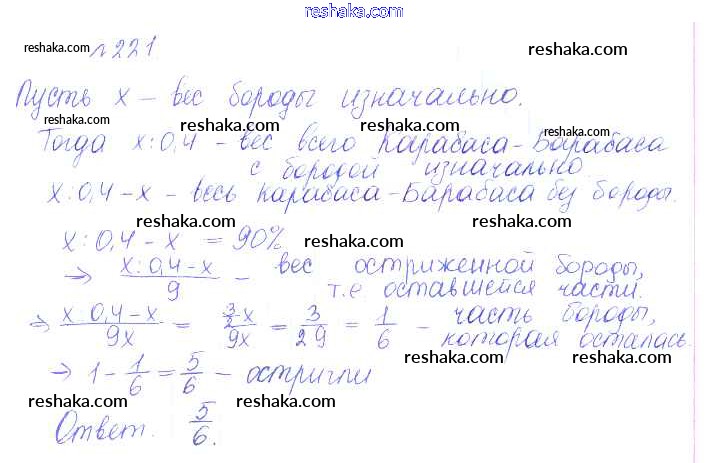 reshaka.com
reshaka.com №221 reshaka.com
Пусть x – вес бороды изначально.
reshaka.com reshaka.com reshaka.com
Тогда x:0,4 – вес всего Карабаса-Барабаса
с бородой изначально
reshaka.com reshaka.com
x:0,4 – x – весь Карабаса-Барабаса без бороды.
reshaka.com reshaka.com
x:0,4 – x = 90%
reshaka.com
⇒ x:0,4–x / 9 – вес остриженной бороды,
т.е оставшейся части.
reshaka.com reshaka.com
⇒ x:0,4–x / 9x = 3/2 x / 9x = 3 / 2 9 = 1/6 – часть бороды,
которая осталась.
reshaka.com reshaka.com reshaka.com
⇒ 1 – 1/6 = 5/6 – остригли
reshaka.com reshaka.com
Ответ. 5/6.
reshaka.com reshaka.com
reshaka.com